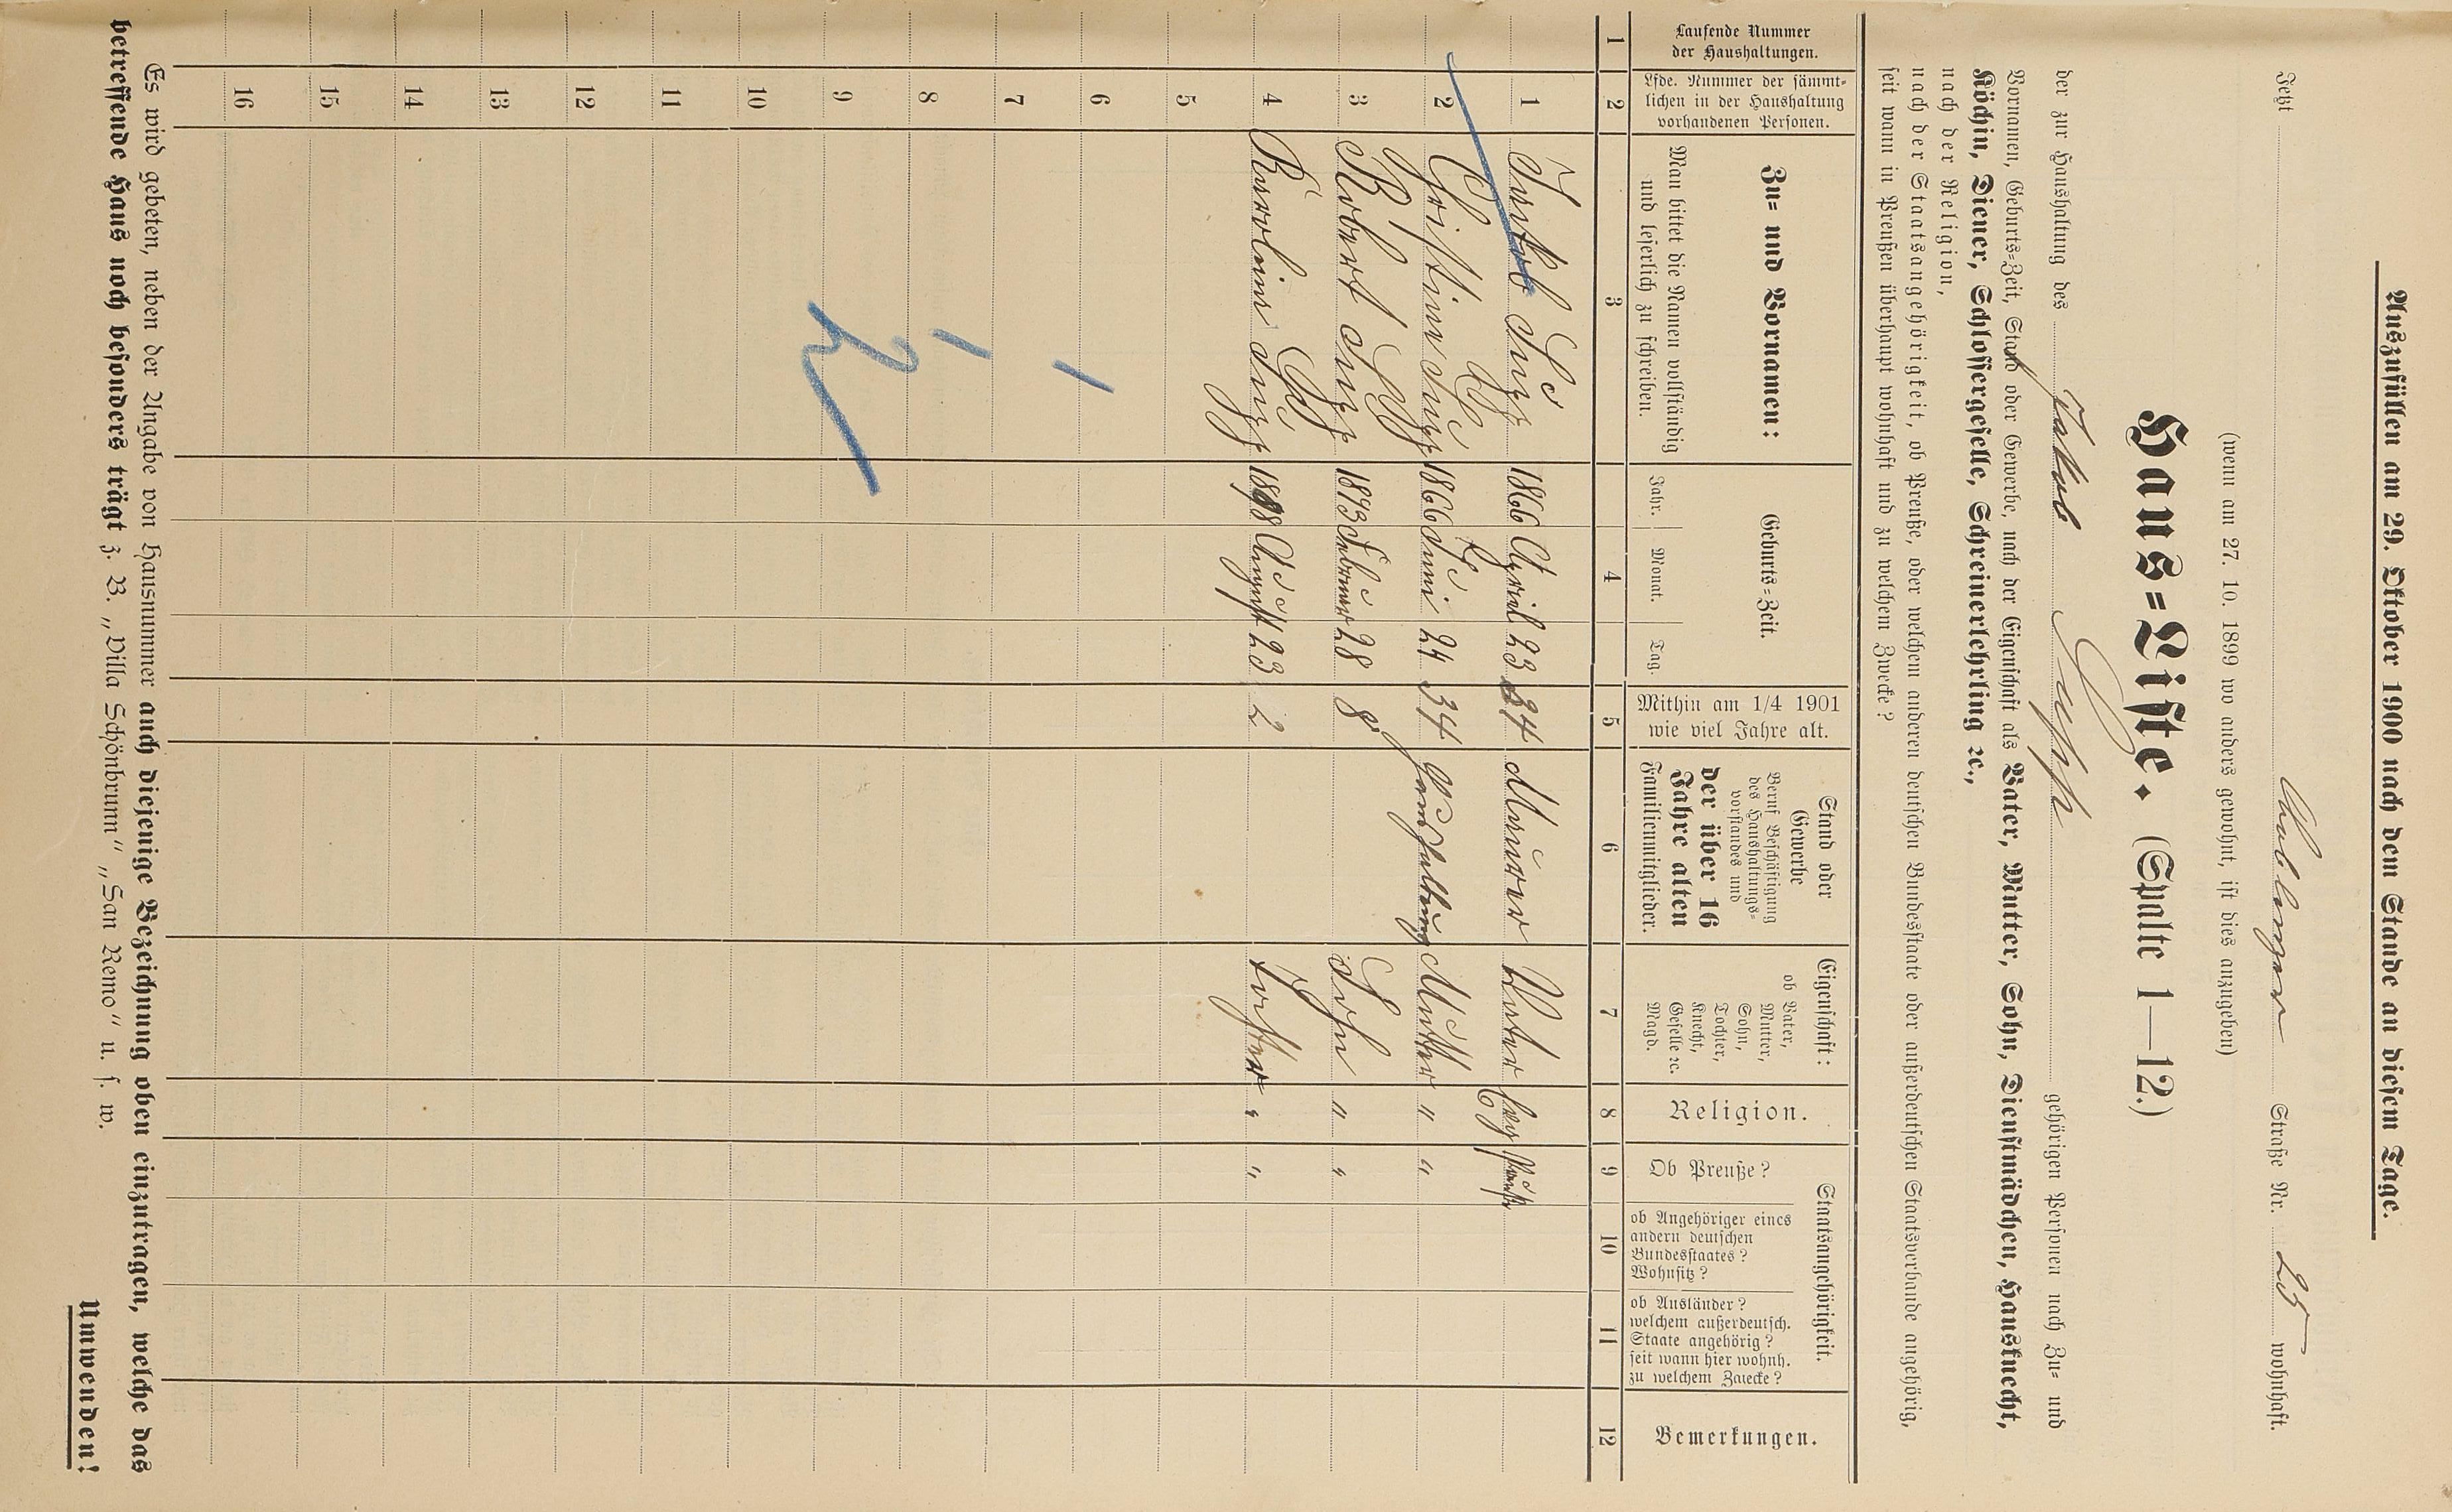 Auszufüllen am 29. Oktober 1900 nach dem Stande an diesem Tage.
Jetzt Coblenzer Straße Nr. 25 wohnhaft.
(wenn am 27. 10. 1899 wo anders gewohnt, ist dies anzugeben)
Haus=Liste. (Spalte 1—12.)
der zur Haushaltung des Jakob gehörigen Personen nach Zu= und
Vornamen, Geburts=Zeit, Stand oder Gewerbe, nach der Eigenschaft als Vater, Mutter, Sohn, Dienstmädchen, Hausknecht,
Köchin, Diener, Schlossergeselle, Schreinerlehrling ꝛc.,
nach der Religion,
nach der Staatsangehörigkeit, ob Preuße, oder welchem anderen deutschen Bundesstaate oder außerdeutschen Staatsverbande angehörig,
seit wann in Preußen überhaupt wohnhaft und zu welchem Zwecke?
Laufende Nummer
der Haushaltungen.
Lfde. Nummer der sämmt=
lichen in der Haushaltung
vorhandenen Personen.
Zu= und Vornamen:
Man bittet die Namen vollständig
und leserlich zu schreiben.
Geburts=Zeit.
Jahr. Monat. Tag.
Mithin am 1/4 1901
wie viel Jahre alt.
Stand oder
Gewerbe
Beruf Beschäftigung
des Haushaltungs=
vorstandes und
der über 16
Jahre alten
Familienmitglieder.
Eigenschaft:
ob Vater,
Mutter,
Sohn,
Tochter,
Knecht,
Geselle ꝛc.
Magd.
Religion.
Staatsangehörigkeit.
Ob Preuße?
ob Angehöriger eines
andern deutschen
Bundesstaates?
Wohnsitz?
ob Ausländer?
welchem außerdeutsch.
Staate angehörig?
seit wann hier wohnh.
zu welchem Zwecke?
Bemerkungen.
1 2 3 4 5 6 7 8 9 10 11 12
1 Jakob 1866 April 23 34 Maurer Vater
2 Christine 1866 Juni 24 34 Haushaltung Mutter " "
3 Robert 1893 Februar 28 8 Sohn " "
4 Karoline 1898 August 23 2 Tochter " "
5
6
7
8
9
10
11
12
13
14
15
16
Es wird gebeten, neben der Angabe von Hausnummer auch diejenige Bezeichnung oben einzutragen, welche das
betreffende Haus noch besonders trägt z. B. „Villa Schönbrunn“ „San Remo“ u. s. w.
Umwenden!